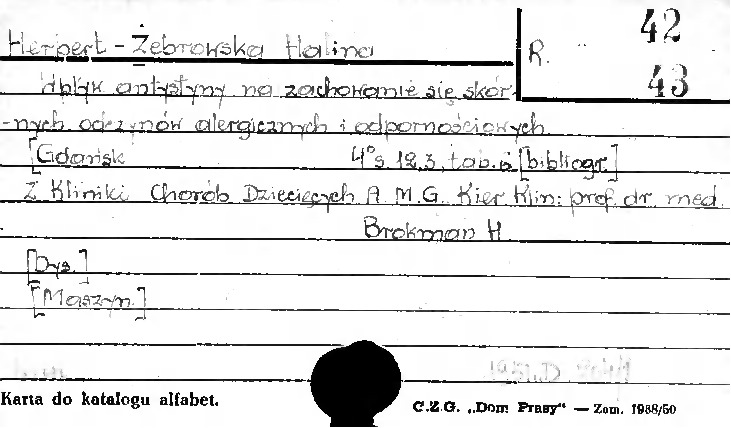 Herpert - Żebrowska Halina
R. 42
43
Wpływ antystyny na zachowanie się skór-
-nych odczynów alergicznych i odpornościowych.
[Gdańsk 4° s. 123, tab. [bibliogr.]
Z Kliniki Chorób Dziecięcych A.M.G. Kier. Klin: prof. dr. med.
Brokman H.
[Dys.]
[Maszyn.]
Karta do katalogu alfabet.
C.Z.G. „Dom Prasy” — Zam. 1988/50